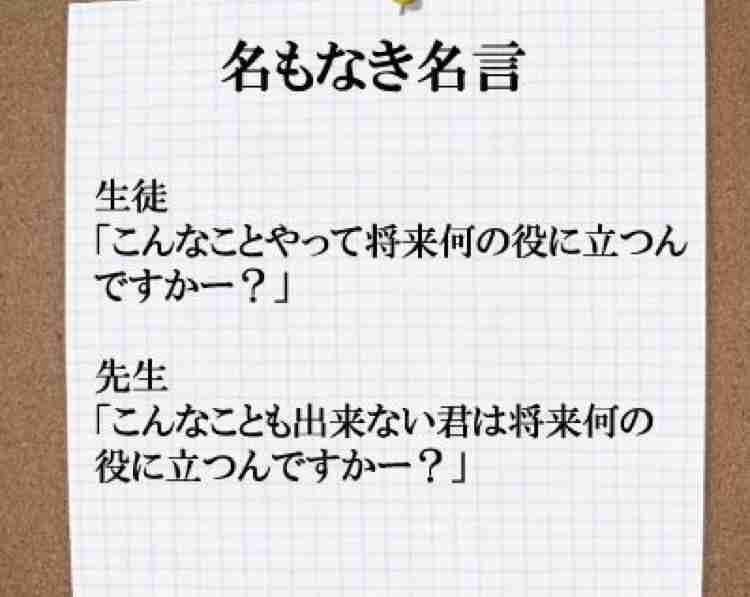 名もなき名言
生徒
「こんなことやって将来何の役に立つん
ですかー？」
先生
「こんなことも出来ない君は将来何の
役に立つんですかー？」